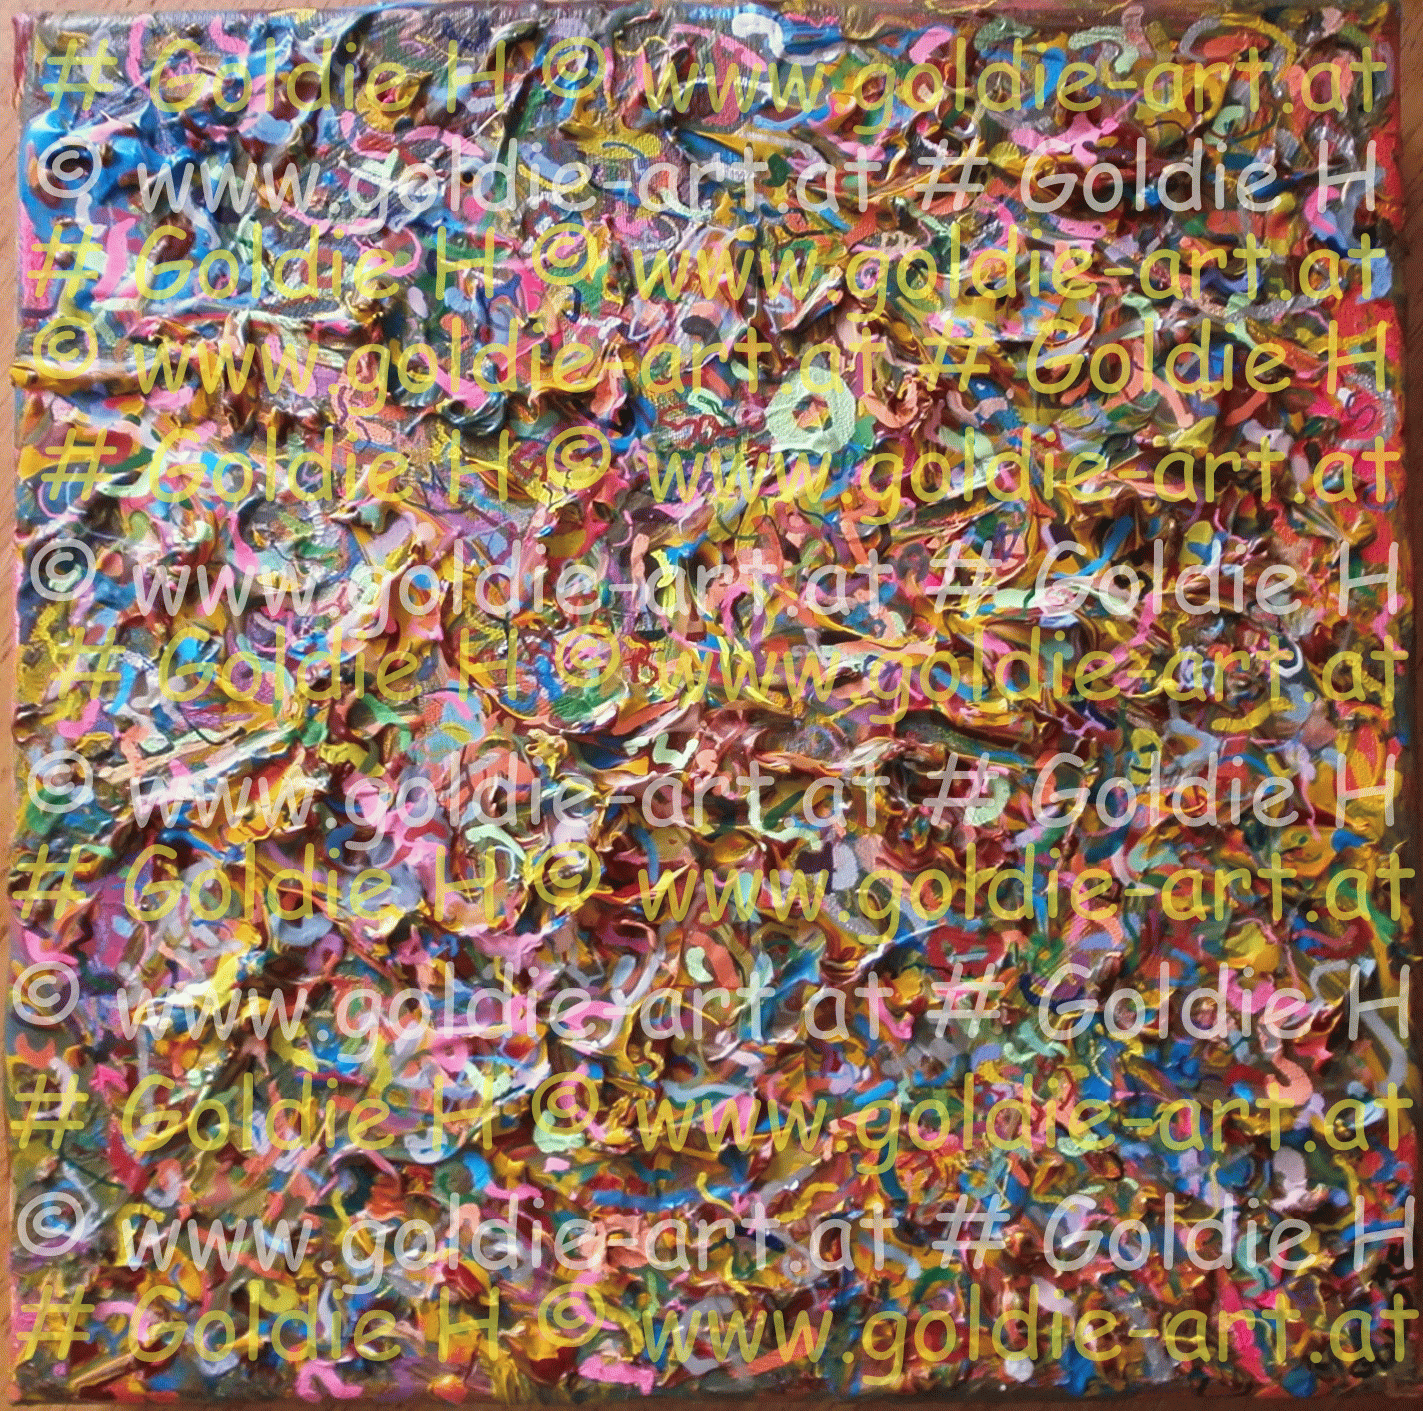 # Goldie H © www.goldie-art.at
© www.goldie-art.at # Goldie H
# Goldie H © www.goldie-art.at
© www.goldie-art.at # Goldie H
# Goldie H © www.goldie-art.at
© www.goldie-art.at # Goldie H
# Goldie H © www.goldie-art.at
© www.goldie-art.at # Goldie H
# Goldie H © www.goldie-art.at
© www.goldie-art.at # Goldie H
# Goldie H © www.goldie-art.at
© www.goldie-art.at # Goldie H
# Goldie H © www.goldie-art.at